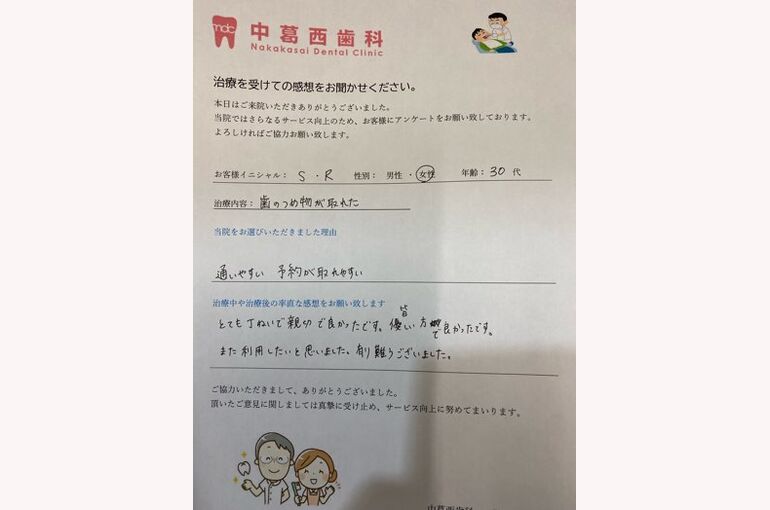 mdc
中葛西歯科
Nakakasai Dental Clinic
治療を受けての感想をお聞かせください。
本日はご来院いただきありがとうございました。
当院ではさらなるサービス向上のため、お客様にアンケートをお願い致しております。
よろしければご協力お願い致します。
お客様イニシャル： S ・ R 性別： 男性 ・ 女性 年齢：30 代
治療内容：歯のつめ物が取れた
当院をお選びいただきました理由
通いやすい 予約が取れやすい
治療中や治療後の率直な感想をお願い致します
とても丁ねいで親切で良かったです。皆優しい方で良かったです。
また利用したいと思いました。有り難うございました。
ご協力いただきまして、ありがとうございました。
頂いたご意見に関しましては真摯に受け止め、サービス向上に努めてまいります。